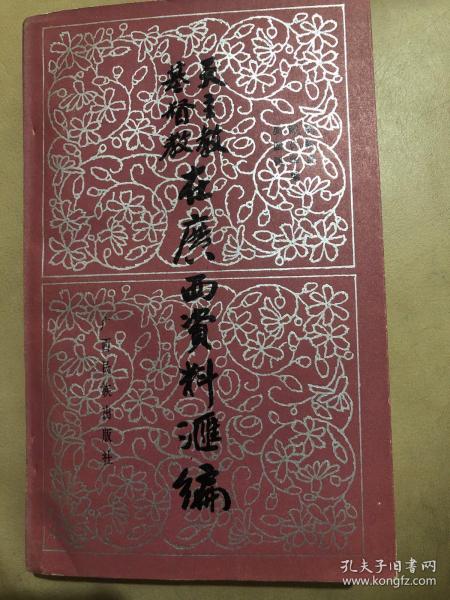 天主教
基督教
在廣西資料滙編
广西民族出版社
孔夫子旧书网
www.kongfz.com